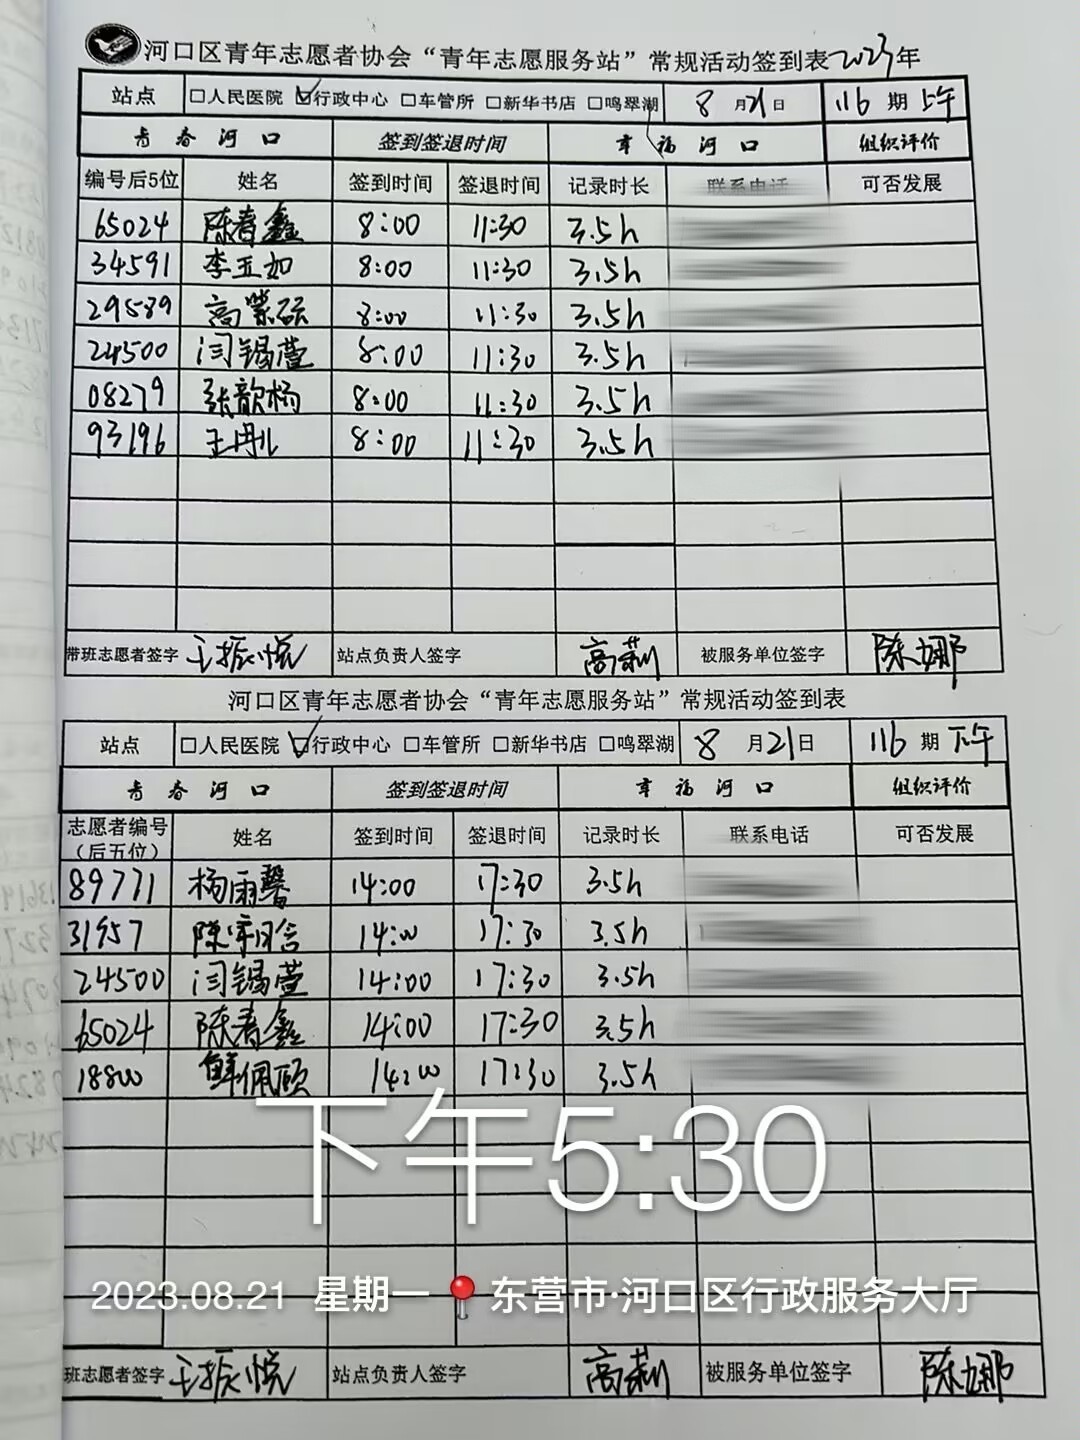 河口区青年志愿者协会“青年志愿服务站”常规活动签到表2023年
站点 □人民医院 ☑行政中心 □车管所 □新华书店 □鸣翠湖 8月21日 116期 上午
青春河口 签到签退时间 幸福河口 组织评价
编号后5位 姓名 签到时间 签退时间 记录时长 联系电话 可否发展
65024 陈春鑫 8:00 11:30 3.5h
34591 李玉如 8:00 11:30 3.5h
29589 高荣硕 8:00 11:30 3.5h
24500 闫锡萱 8:00 11:30 3.5h
08279 张歆杨 8:00 11:30 3.5h
93196 王丹儿 8:00 11:30 3.5h
带班志愿者签字 王振悦 站点负责人签字 高莉 被服务单位签字 陈娜
河口区青年志愿者协会“青年志愿服务站”常规活动签到表
站点 □人民医院 ☑行政中心 □车管所 □新华书店 □鸣翠湖 8月21日 116期 下午
青春河口 签到签退时间 幸福河口 组织评价
志愿者编号（后五位） 姓名 签到时间 签退时间 记录时长 联系电话 可否发展
89771 杨雨馨 14:00 17:30 3.5h
31957 陈 14:00 17:30 3.5h
24500 闫锡萱 14:00 17:30 3.5h
65024 陈春鑫 14:00 17:30 3.5h
18800 鲜佩颐 14:00 17:30 3.5h
下午5:30
2023.08.21 星期一 东营市·河口区行政服务大厅
班志愿者签字 王振悦 站点负责人签字 高莉 被服务单位签字 陈娜